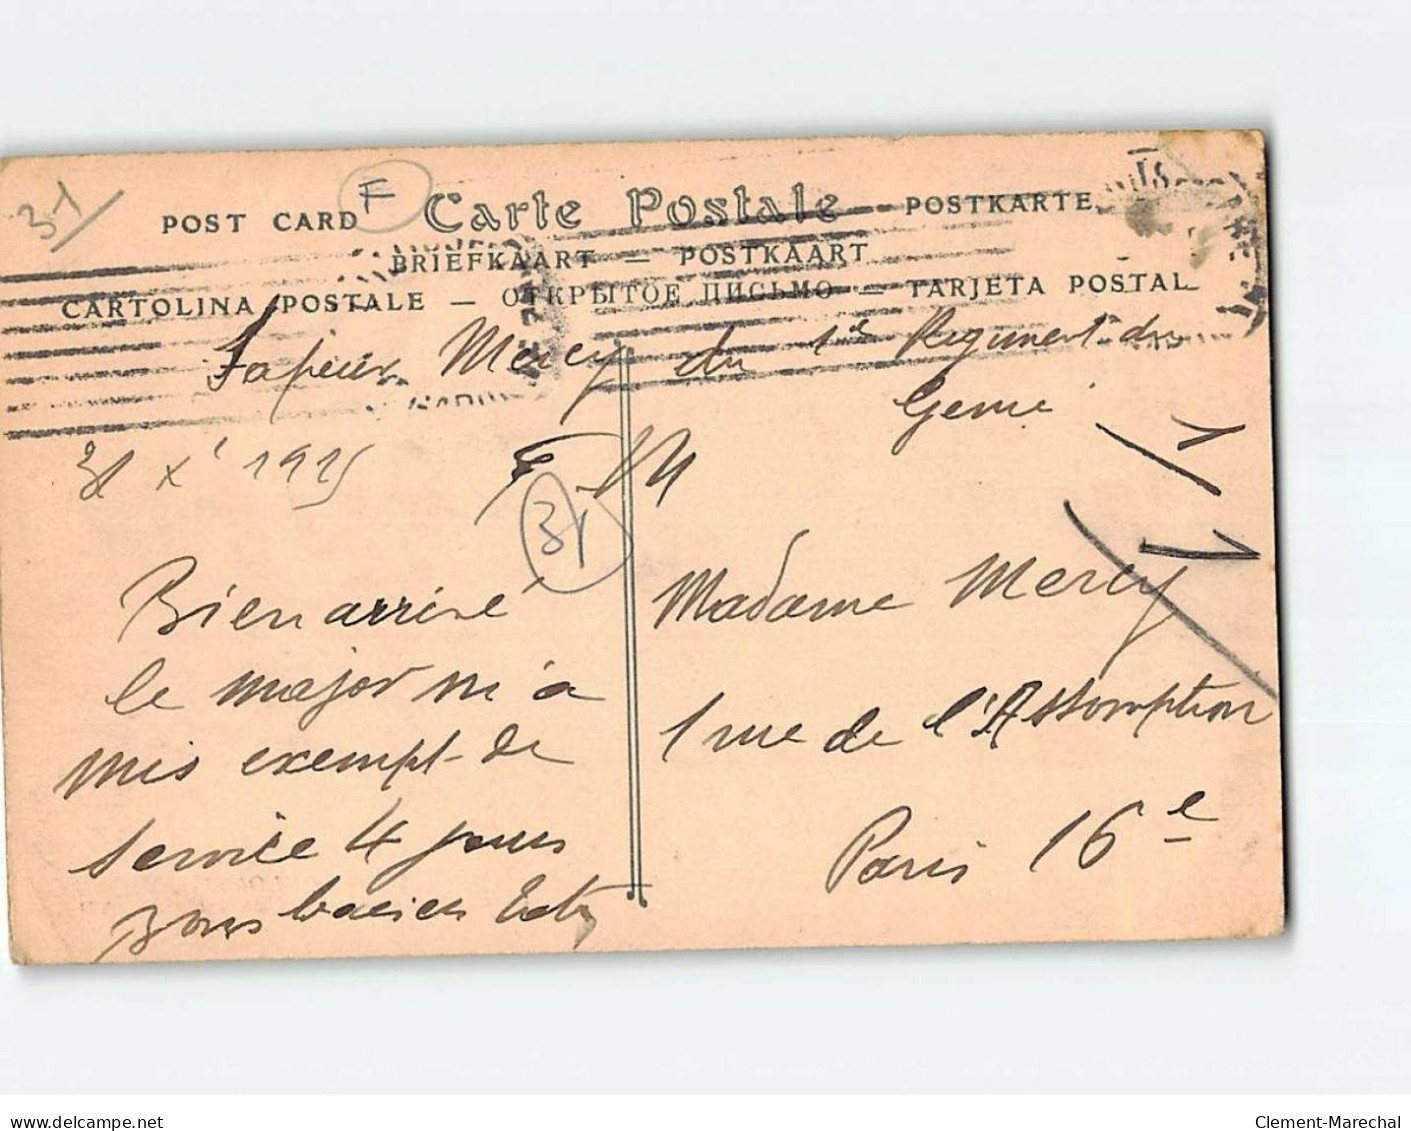 31
F
POST CARD Carte Postale POSTKARTE
BRIEFKAART — POSTKAART
CARTOLINA POSTALE — ОТКРЫТОЕ ПИСЬМО — TARJETA POSTAL
Sapeur Mercy du 1er Regiment du
Genie
31 Xe 1915
F M
31
1
1
Bien arrivé
le major m'a
mis exempt de
service 4 jours
Bons baisers
Madame Mercy
1 rue de l'Assomption
Paris 16e
www.delcampe.net
Clement-Marechal